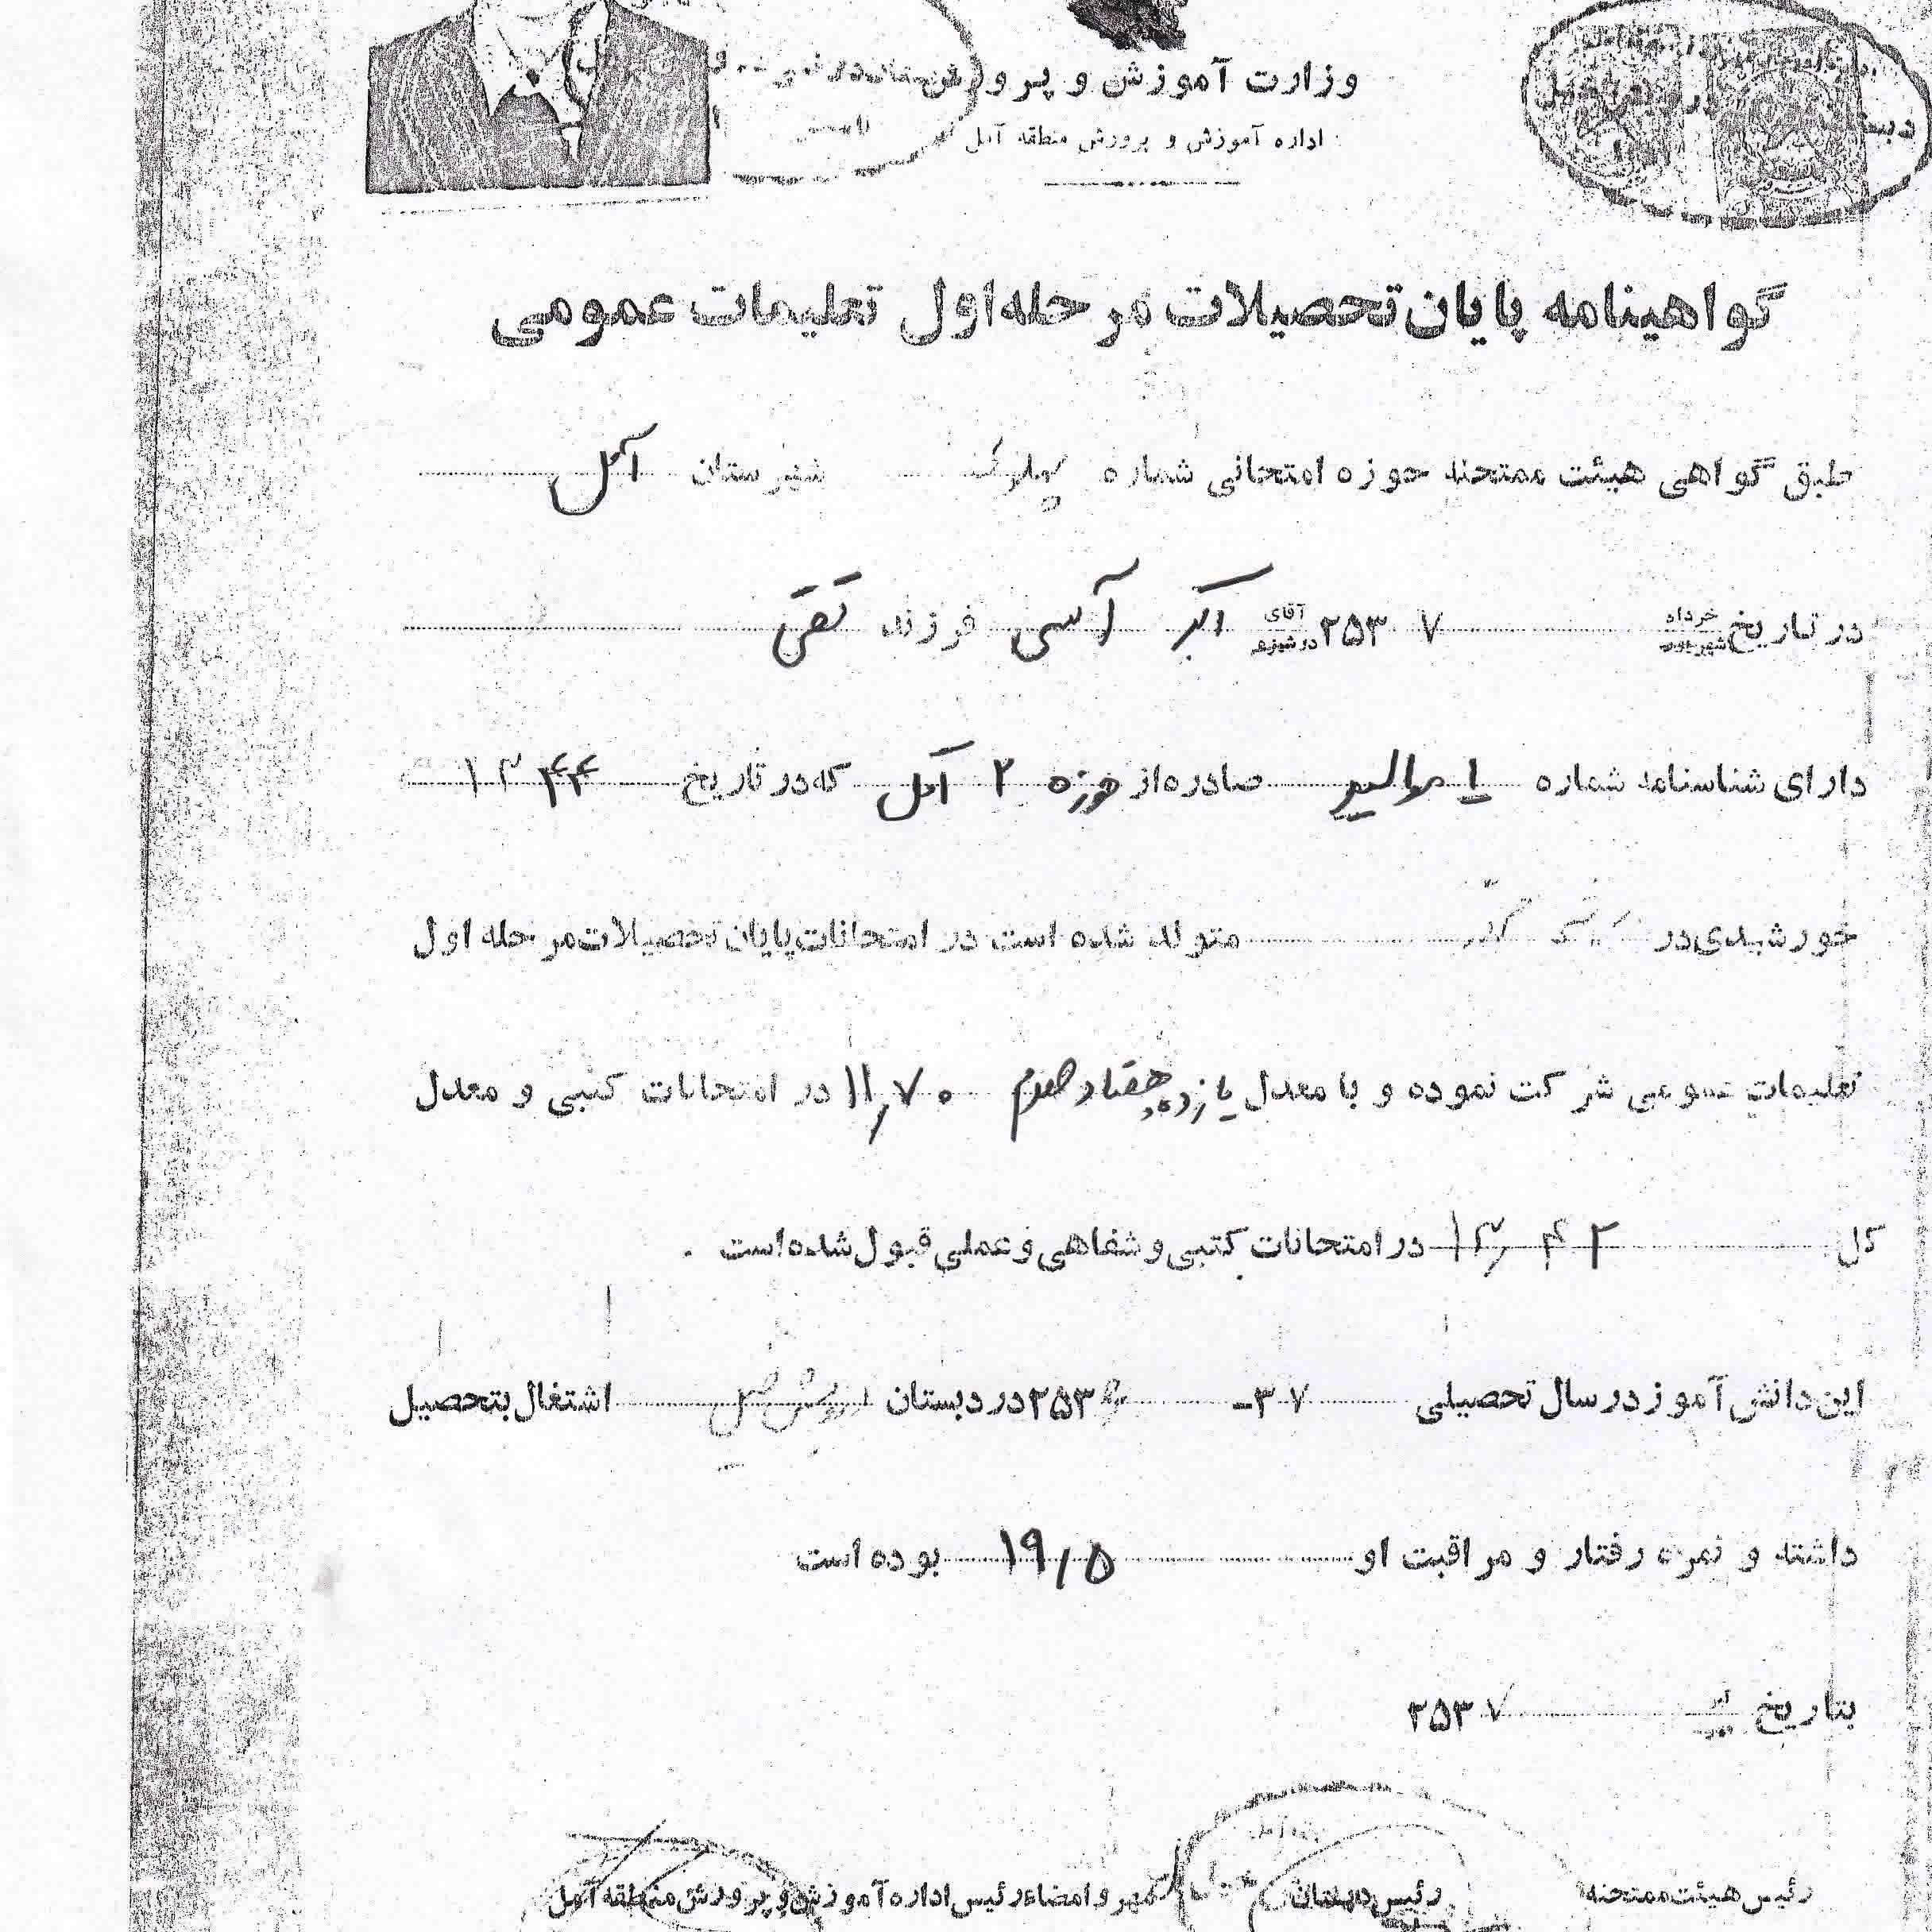 وزارت آموزش و پرورش
اداره آموزش و پرورش منطقه آمل
گواهینامه پایان تحصیلات مرحله اول تعلیمات عمومی
طبق گواهی هیئت ممتحنه حوزه امتحانی شماره شهرستان آمل
در تاریخ خرداد شهریور ۲۵۳۷ آقای دوشیزه اکبر آسی فرزند تقی
دارای شناسنامه شماره ۱ صادره از حوزه ۲ آمل که در تاریخ ۱۳۴۴
خورشیدی در متولد شده است در امتحانات پایان تحصیلات مرحله اول
تعلیمات عمومی شرکت نموده و با معدل یازده هفتاد صدم ۱۱٫۷۰ در امتحانات کتبی و معدل
کل ۱۳٫۴۲ در امتحانات کتبی و شفاهی و عملی قبول شده است .
این دانش آموز در سال تحصیلی ۳۷- ۲۵۳۶ در دبستان اشتغال بتحصیل
داشته و نمره رفتار و مراقبت او ۱۹/۵ بوده است
بتاریخ ۲۵۳۷
رئیس هیئت ممتحنه رئیس دبستان مهر و امضاء رئیس اداره آموزش و پرورش منطقه آمل